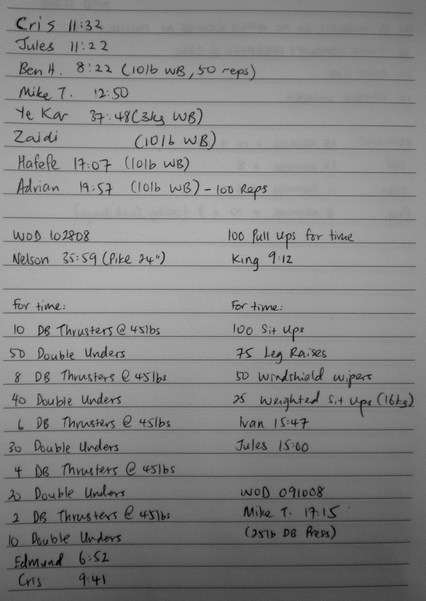 Cris 11:32
Jules 11:22
Ben H. 8:22 (10lb WB, 50 reps)
Mike T. 12:50
Ye Kar 37:48 (3kg WB)
Zaidi (10lb WB)
Hafefe 17:07 (10lb WB)
Adrian 19:57 (10lb WB) - 100 Reps
WOD 102808
Nelson 35:59 (Pike 24")
100 Pull Ups for time
King 9:12
For time:
10 DB Thrusters @ 45lbs
50 Double Unders
8 DB Thrusters @ 45lbs
40 Double Unders
6 DB Thrusters @ 45lbs
30 Double Unders
4 DB Thrusters @ 45lbs
20 Double Unders
2 DB Thrusters @ 45lbs
10 Double Unders
Edmund 6:52
Cris 9:41
For time:
100 Sit Ups
75 Leg Raises
50 Windshield wipers
25 Weighted Sit Ups (16kg)
Ivan 15:47
Jules 15:00
WOD 091008
Mike T. 17:15
(25lb DB Press)